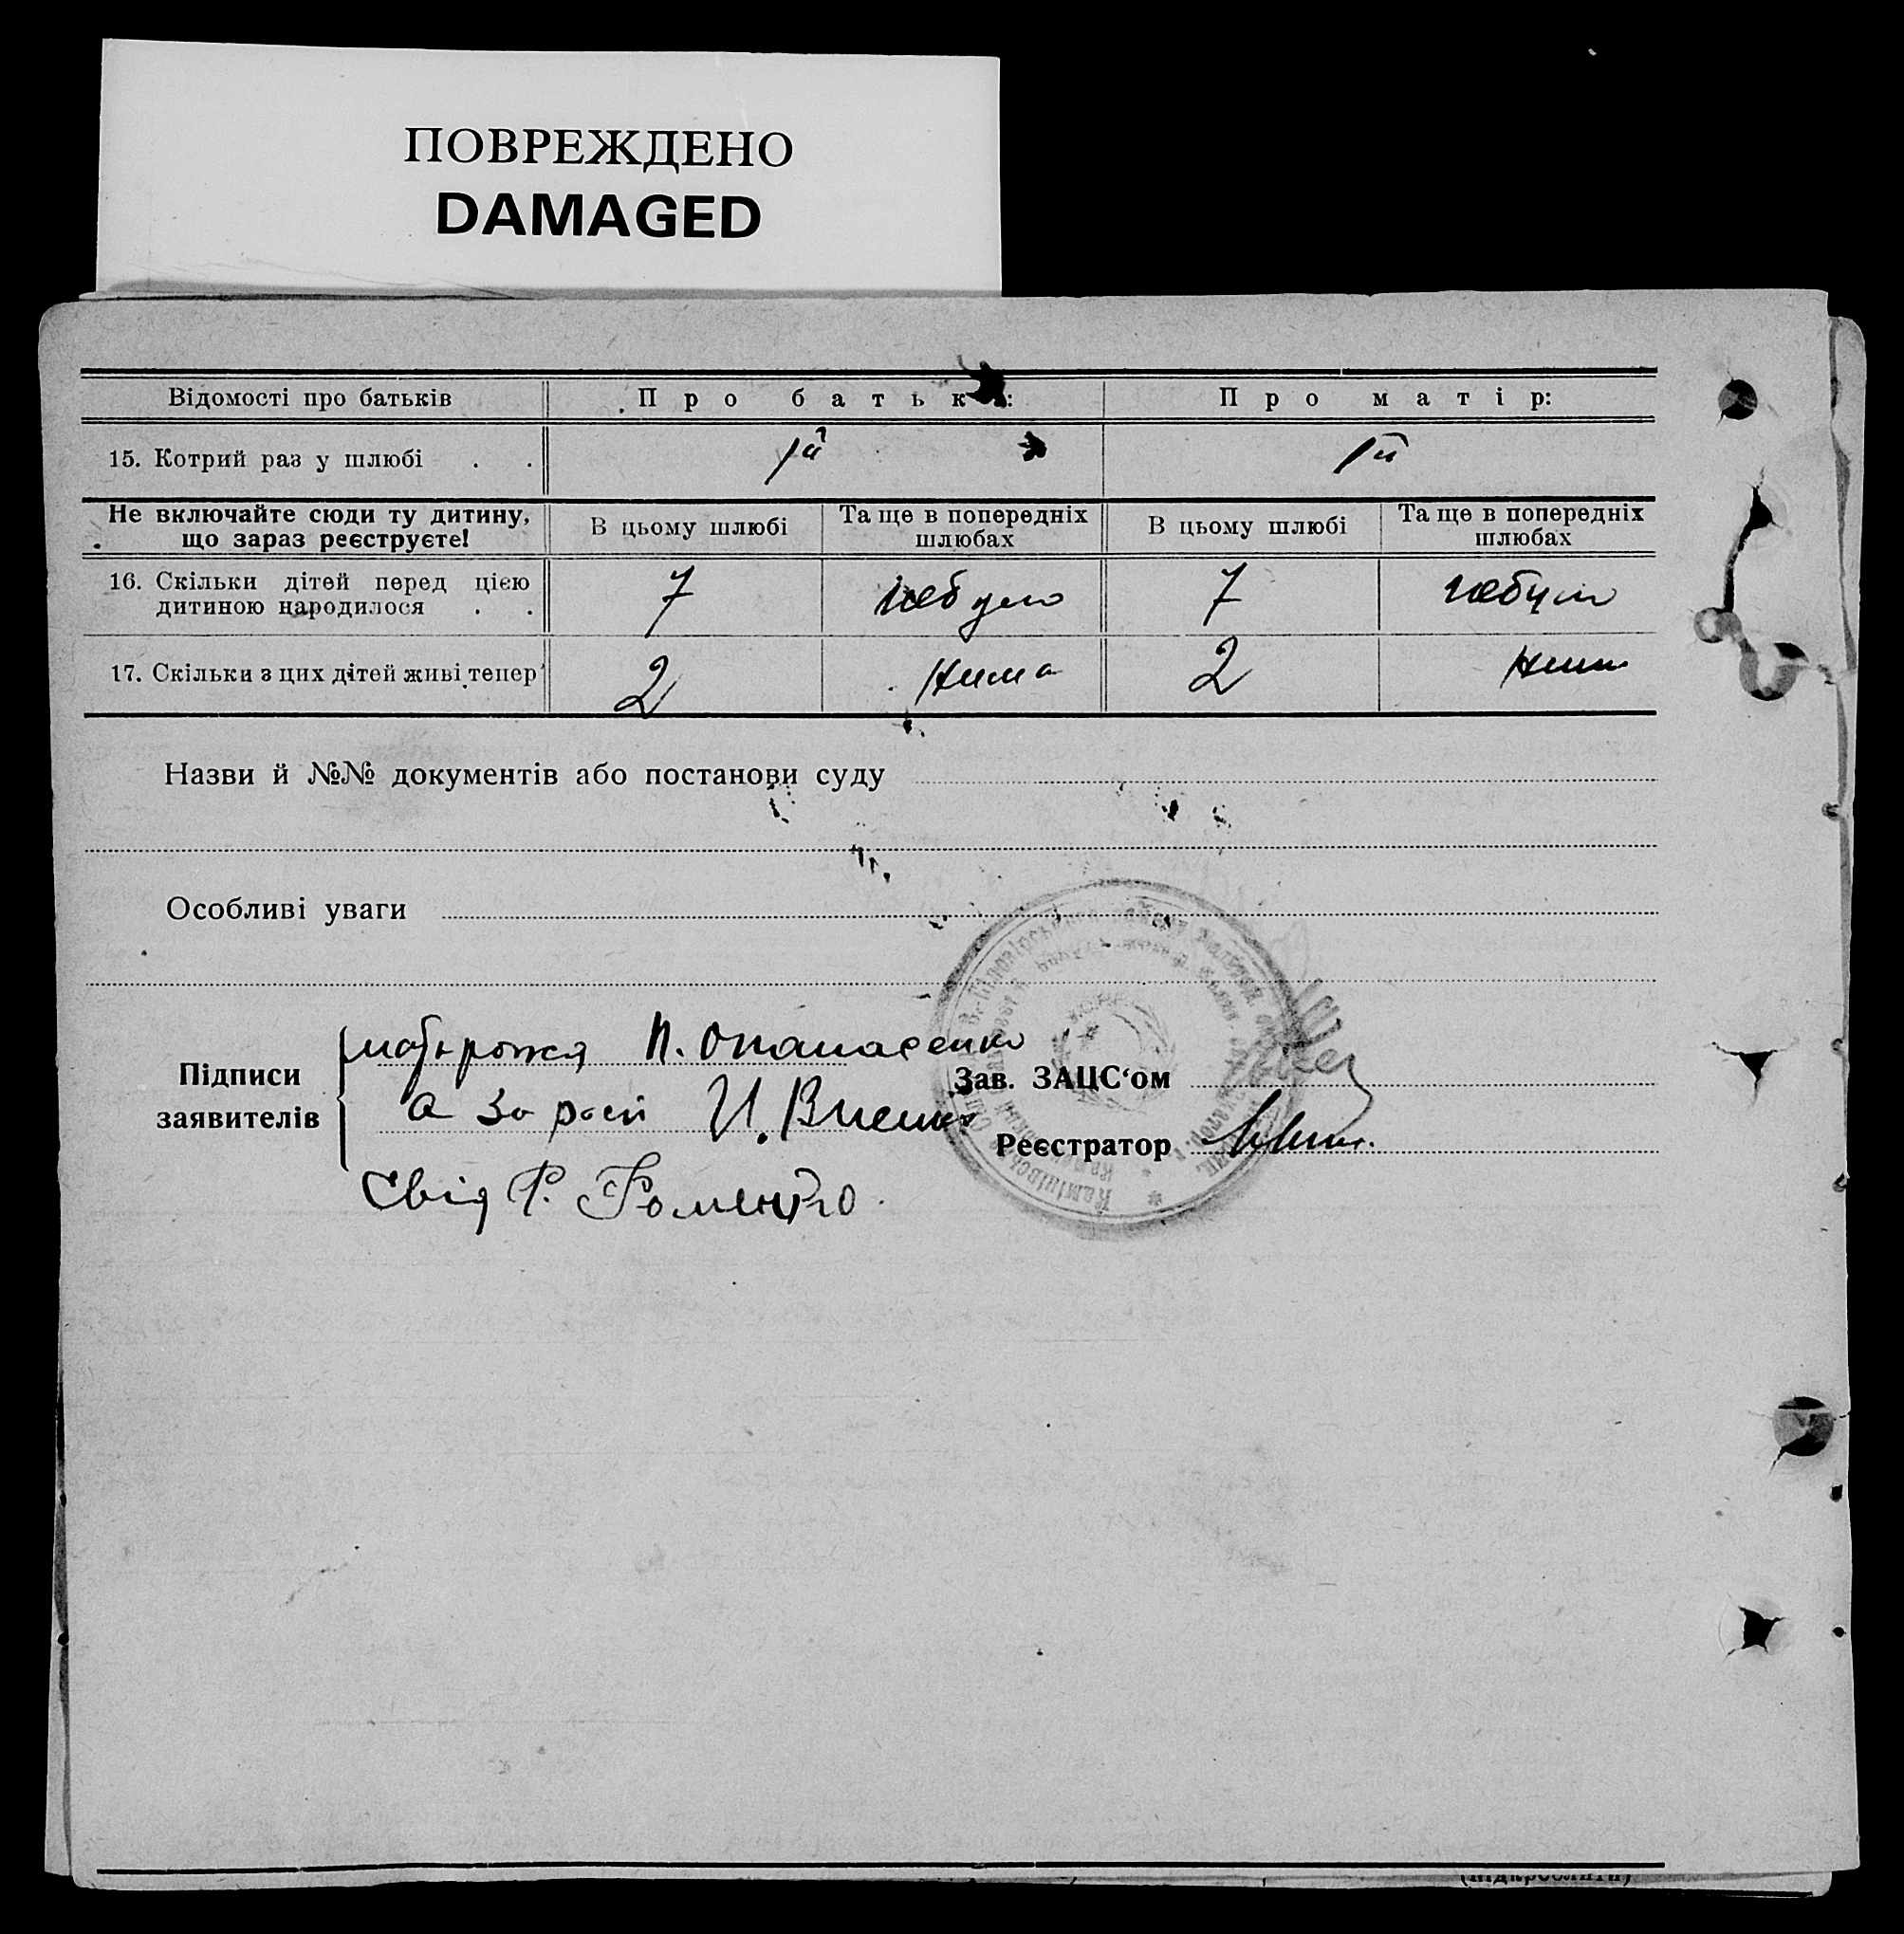 ПОВРЕЖДЕНО
DAMAGED
Відомості про батьків Про батьк : Про матір:
15. Котрий раз у шлюбі . . 1й 1й
Не включайте сюди ту дитину, що зараз реєструєте! В цьому шлюбі Та ще в попередніх шлюбах В цьому шлюбі Та ще в попередніх шлюбах
16. Скільки дітей перед цією
дитиною народилося . . 7 небуло 7 небуло
17. Скільки з цих дітей живі тепер 2 Нима 2
Назви й №№ документів або постанови суду
Особливі уваги
Підписи
заявителів
П. Опанасенко
а за
И.
Свід Ф. Фоменко
Зав. ЗАЦС‘ом
Реєстратор